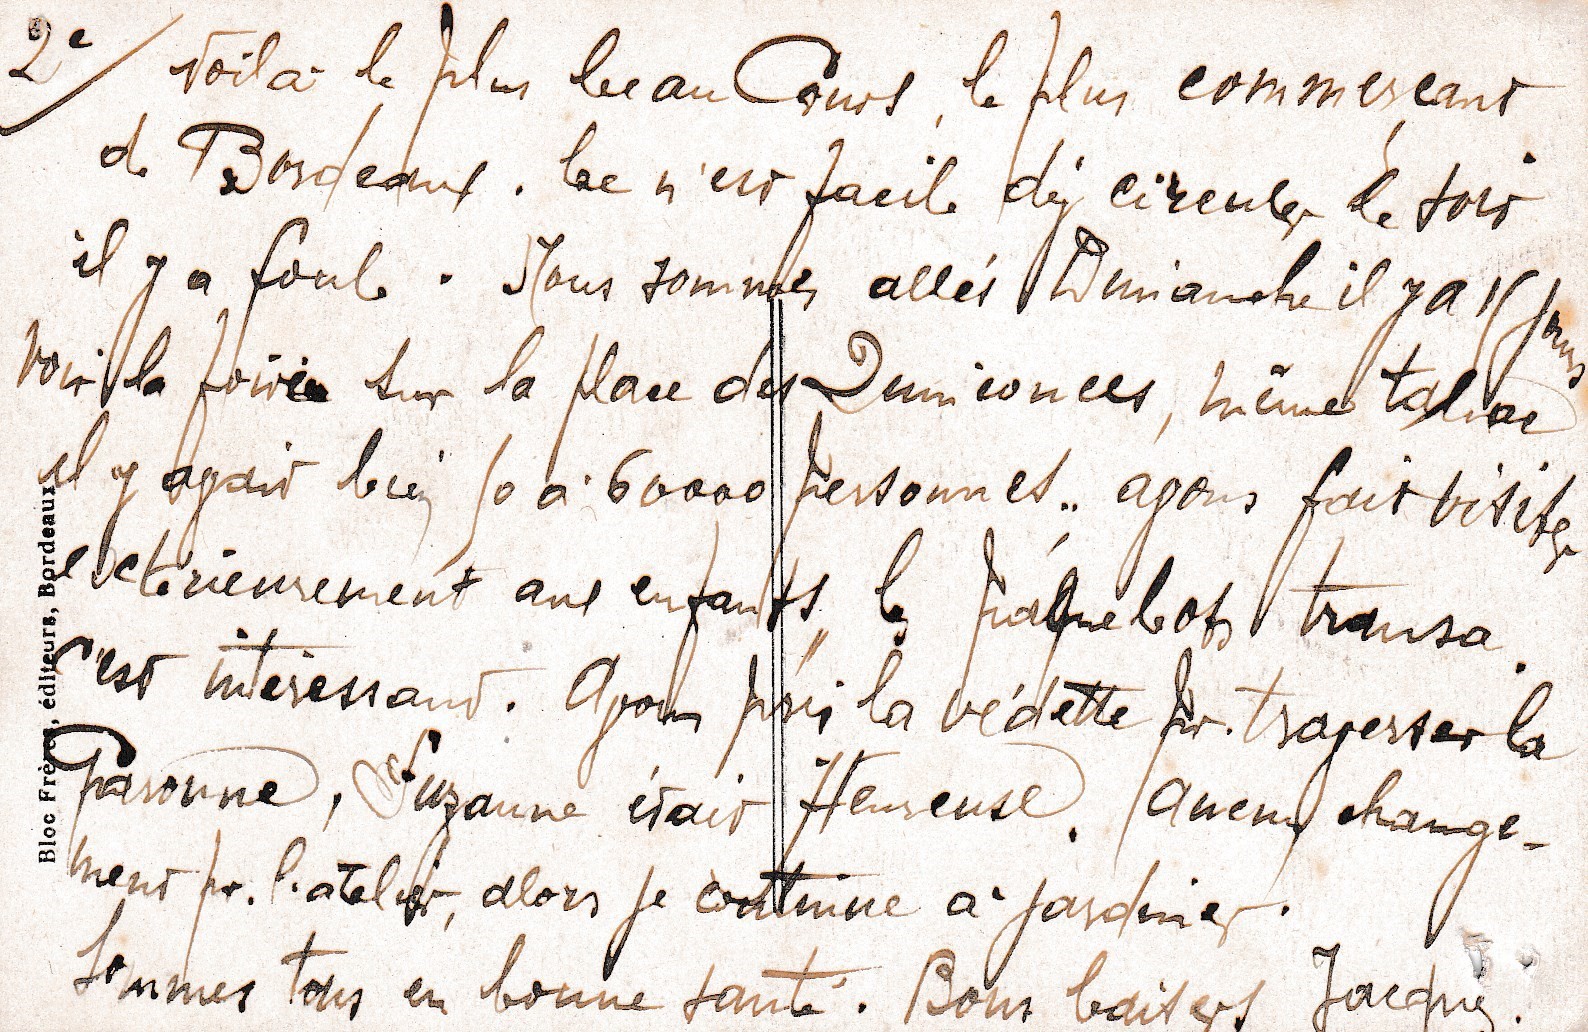 2e/ Voilà le plus beau Cours, le plus commerçant
de Bordeaux. Ce n'est facile d'y circuler le soir
il y a foule. Nous sommes allés Dimanche il y a 15 jours
voir la foire sur la place des Quinconces, même tabac
il y avait bien 50 à 60000 personnes.. avons fait visiter
extérieurement aux enfants, les paquebots transa.
C'est intéressant. Avons pris la védette pr. traverser la
Garonne, Suzanne était Heureuse. Aucun change-
ment pr. l'atelier, alors je continue à jardiner.
Sommes tous en bonne santé. Bons baisers Jacques.
Bloc Frères, éditeurs, Bordeaux